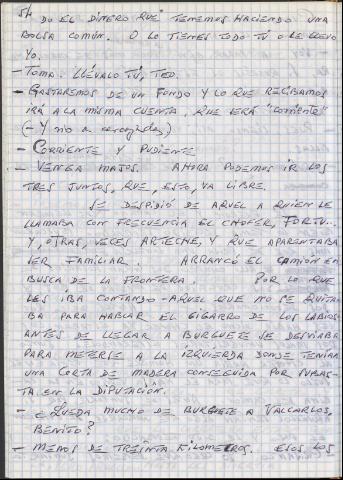 54
DO EL DINERO QUE TENEMOS HACIENDO UNA
BOLSA COMÚN. O LO TIENES TODO TÚ O LE LLEVO
YO.
- TOMA. LLÉVALO TÚ, TEO.
- GASTAREMOS DE UN FONDO Y LO QUE RECIBAMOS
IRÁ A LA MISMA CUENTA, QUE SERÁ "corriente"
(- Y no a escogidas)
- CORRIENTE Y PUDIENTE
- VENGA MAJOS. AHORA PODEMOS IR LOS
TRES JUNTOS, QUE, ESTO, VA LIBRE.
SE DESPIDIÓ DE AQUEL A QUIEN LE
LLAMABA CON FRECUENCIA EL CHOFER, FORTU...
Y, OTRAS, VECES ARTECHE, Y QUE APARENTABA
SER FAMILIAR. ARRANCÓ EL CAMIÓN EN
BUSCA DE LA FRONTERA. POR LO QUE
LES IBA CONTANDO - AQUEL QUE NO SE QUITA-
BA PARA HABLAR EL CIGARRO DE LOS LABIOS
ANTES DE LLEGAR A BURGUETE SE DESVIABA
PARA METERSE A LA IZQUIERDA DONDE TENÍAN
UNA CORTA DE MADERA CONSEGUIDA POR SUBAS-
TA EN LA DIPUTACIÓN.
- ¿QUEDA MUCHO DE BURGUETE A VALCARLOS,
BENITO?
- MENOS DE TREINTA KILOMETROS. ESOS LOS